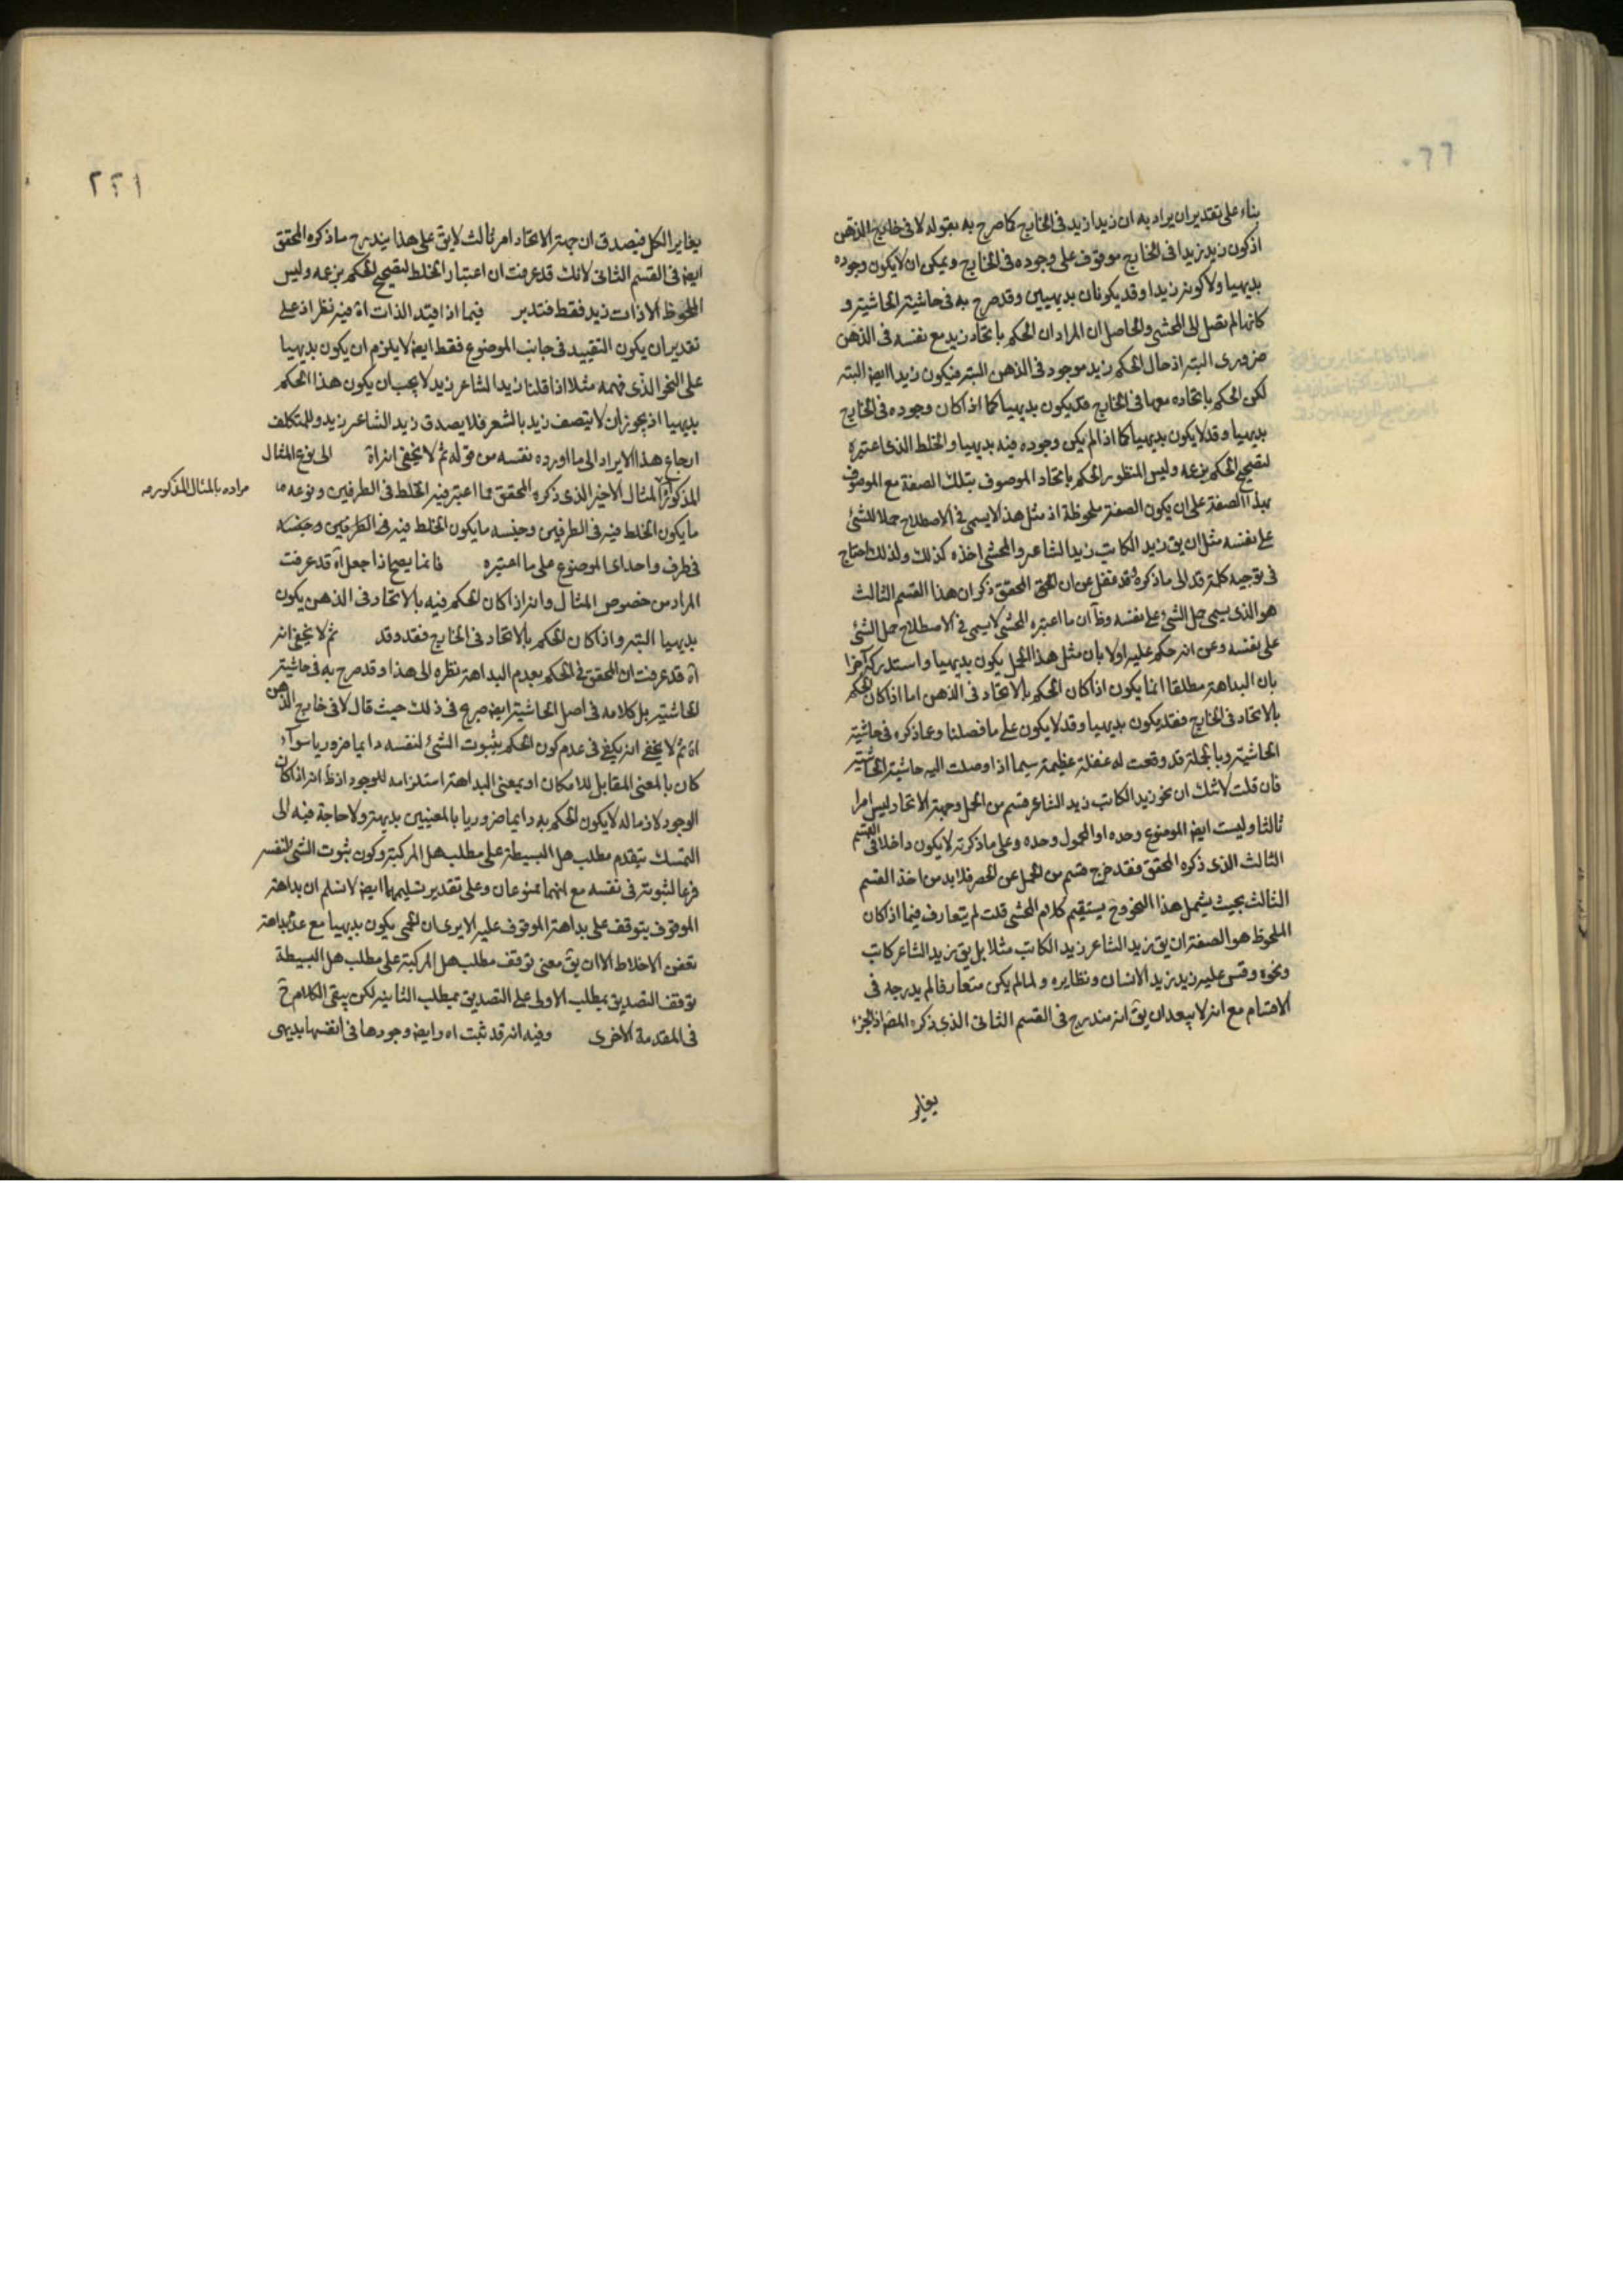 بناء على تقدير ان يراد به ان زيدا زيد فى الخارج كما صرح به بقوله لا فى خارج الذهن
اذ كون زيد زيدا فى الخارج موقوف على وجوده فى الخارج ويمكن ان لا يكون وجوده
بديهيا ولا كونه زيدا وقد يكونان بديهيين وقد صرح به فى حاشية الحاشية و
كانها لم تصل الى المحشى والحاصل ان المراد ان الحكم باتحاد زيد مع نفسه فى الذهن
ضرورى البته اذ حال الحكم زيد موجود فى الذهن البته فيكون زيدا ايضا البته
لكن الحكم باتحاده معها فى الخارج قد يكون بديهيا كما اذا كان وجوده فى الخارج
بديهيا وقد لا يكون بديهيا كما اذا لم يكن وجوده فيه بديهيا والخلط الذى اعتبره
لتصحيح الحكم بزعمه وليس المنظور الحكم باتحاد الموصوف بتلك الصفة مع الموصوف
بهذا الصفة على ان يكون الصفة ملحوظة اذ مثل هذا لا يسمى فى الاصطلاح حملا للشئ
على نفسه مثل ان يق زيد الكاتب زيد الشاعر والمحشى اخذه كذلك ولذلك احتاج
فى توجيه كلمة قد الى ما ذكره فقد غفل عن ان المحقق ذكر ان هذا القسم الثالث
هو الذى يسمى حمل الشئ على نفسه وظ ان ما اعتبره المحشى لا يسمى فى الاصطلاح حمل الشئ
على نفسه وعن انه حكم عليه اولا بان مثل هذا الحمل يكون بديهيا واستدرك آخرا
بان البداهة مطلقا انما يكون اذا كان الحكم بالاتحاد فى الذهن اما اذا كان الحكم
بالاتحاد فى الخارج فقد يكون بديهيا وقد لا يكون على ما فصلنا وعما ذكره فى حاشية
الحاشية وبالجملة قد وقعت له غفلة عظيمة سيما اذا وصلت اليه حاشية الحاشية
فان قلت لا شك ان نحو زيد الكاتب زيد الشاعر قسم من الحمل وجهة الاتحاد ليس امرا
ثالثا وليست ايضا الموضوع وحده او المحمول وحده وعلى ما ذكرته لا يكون داخلا فى القسم
الثالث الذى ذكره المحقق فقد خرج قسم من الحمل عن الحصر فلا بد من اخذ القسم
الثالث بحيث يشمل هذا النحو وح يستقيم كلام المحشى قلت لم يتعارف فيما اذا كان
الملحوظ هو الصفة ان يق زيد الشاعر زيد الكاتب مثلا بل يق زيد الشاعر كاتب
ونحوه وقس عليه زيد زيد الانسان ونظايره ولما لم يكن متعارفا لم يدرجه فى
الاقسام مع انه لا يبعد ان يق انه مندرج فى القسم الثانى الذى ذكره المصنف اذ الجزء
يغاير
٢٢١
يغاير الكل فيصدق ان جهة الاتحاد امر ثالث لا يق على هذا يندرج ما ذكره المحقق
ايضا فى القسم الثانى لانك قد عرفت ان اعتبار الخلط لتصحيح الحكم بزعمه وليس
الملحوظ الا ذات زيد فقط فتدبر فيما اذا قيد الذات آه فيه نظر اذ على
تقدير ان يكون التقييد فى جانب الموضوع فقط ايضا لا يلزم ان يكون بديهيا
على النحو الذى فهمه مثلا اذا قلنا زيد الشاعر زيد لا يجب ان يكون هذا الحكم
بديهيا اذ يجوز ان لا يتصف زيد بالشعر فلا يصدق زيد الشاعر زيد وللمتكلف
ارجاع هذا الايراد الى ما اورده نفسه من قوله ثم لا يخفى انه آه الى نوع المثال
المذكور المثال الاخير الذى ذكره المحقق مما اعتبر فيه الخلط فى الطرفين ونوعه ما
مراده بالمثال المذكور منه
ما يكون الخلط فيه فى الطرفين وجنسه ما يكون الخلط فيه فى الطرفين وجنسه
فى طرف واحد اى الموضوع على ما اعتبره فانما يصح اذا جعل آه قد عرفت
المراد من خصوص المثال وانه اذا كان الحكم فيه بالاتحاد فى الذهن يكون
بديهيا البته واذا كان الحكم بالاتحاد فى الخارج فقد وقد ثم لا يخفى انه
آه قد عرفت ان المحقق فى الحكم بعدم البداهة نظره الى هذا وقد صرح به فى حاشية
الحاشية بل كلامه فى اصل الحاشية ايضا صريح فى ذلك حيث قال لا فى خارج الذهن
آه ثم لا يخفى انه يكفى فى عدم كون الحكم بثبوت الشئ لنفسه دايما ضروريا سوآء
كان بالمعنى المقابل للامكان او بمعنى البداهة استلزامه للوجود اذ ظ انه اذا كان
الوجود لازما له لا يكون الحكم به دايما ضروريا بالمعنيين بديهة ولا حاجة فيه الى
التمسك بتقدم مطلب هل البسيطة على مطلب هل المركبة وكون ثبوت الشئ لنفسه
فرعا لثبوته فى نفسه مع انهما ممنوعان وعلى تقدير تسليمهما ايضا لا نسلم ان بداهة
الموقوف يتوقف على بداهة الموقوف عليه الا يرى ان الحمى يكون بديهيا مع عدم بداهة
تعفن الاخلاط الا ان يق معنى توقف مطلب هل المركبة على مطلب هل البسيطة
توقف التصديق بمطلب الاولى على التصديق بمطلب الثانية لكن يبقى الكلام ح
فى المقدمة الاخرى وفيه انه قد ثبت اه وايضا وجودها فى انفسها بديهى